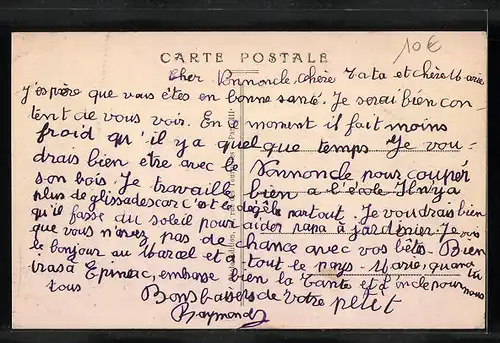 10€
CARTE POSTALE
Cher Nonnoncle, chère Tata et chère Marie
J'espère que vous êtes en bonne santé. Je serai bien con-
tent de vous voir. En ce moment il fait moins
froid qu'il y a quelque temps Je vou-
drais bien etre avec le Nonnoncle pour couper
son bois. Je travaille bien a l'école Il n'y a
plus de glissades car c'est le dégèle partout. Je voudrais bien
qu'il fasse du soleil pour aider papa à jardiner. Je vois
que vous n'avez pas de chance avec vos bêtes. Bien
le bonjour au Marcel et à tout le pays. Marie, quand tu
iras à Epinac, embasse bien la Tante et l'oncle pour nous
tous
Bons baisers de votre petit
Raymond